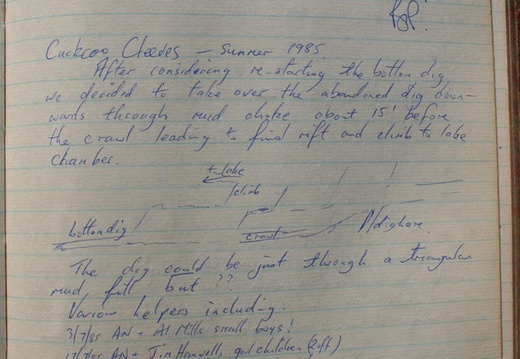 Cuckoo Cleeves - Summer 1985
After considering re-starting the bottom dig
we decided to take over the abandoned dig down-
wards through mud choke about 15' before
the crawl leading to final rift and climb to lake
chamber.
to lake
climb
bottom dig
crawl
dig here.
The dig could be just through a triangular
mud fill but ??
Various helpers including:
3/7/85 AN + Al Mills small boys!
AN + Jim Hanwell's god children (2 off)